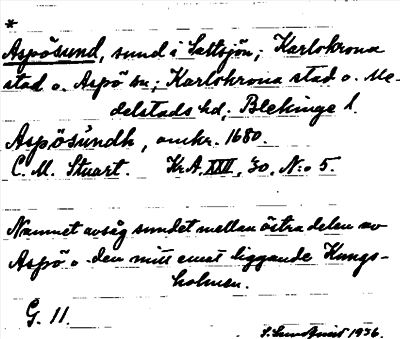 *
Aspösund, sund i Saltsjön; Karlskrona
stad o. Aspö sn; Karlskrona stad o. Me-
delstads hd, Blekinge l.
Aspösundh, omkr. 1680.
C. M. Stuart. Kr.A. XXII, 30, N:o 5.
Namnet avsåg sundet mellan östra delen av
Aspö o. den mitt emot liggande Kungs-
holmen.
G. 11.
1936.